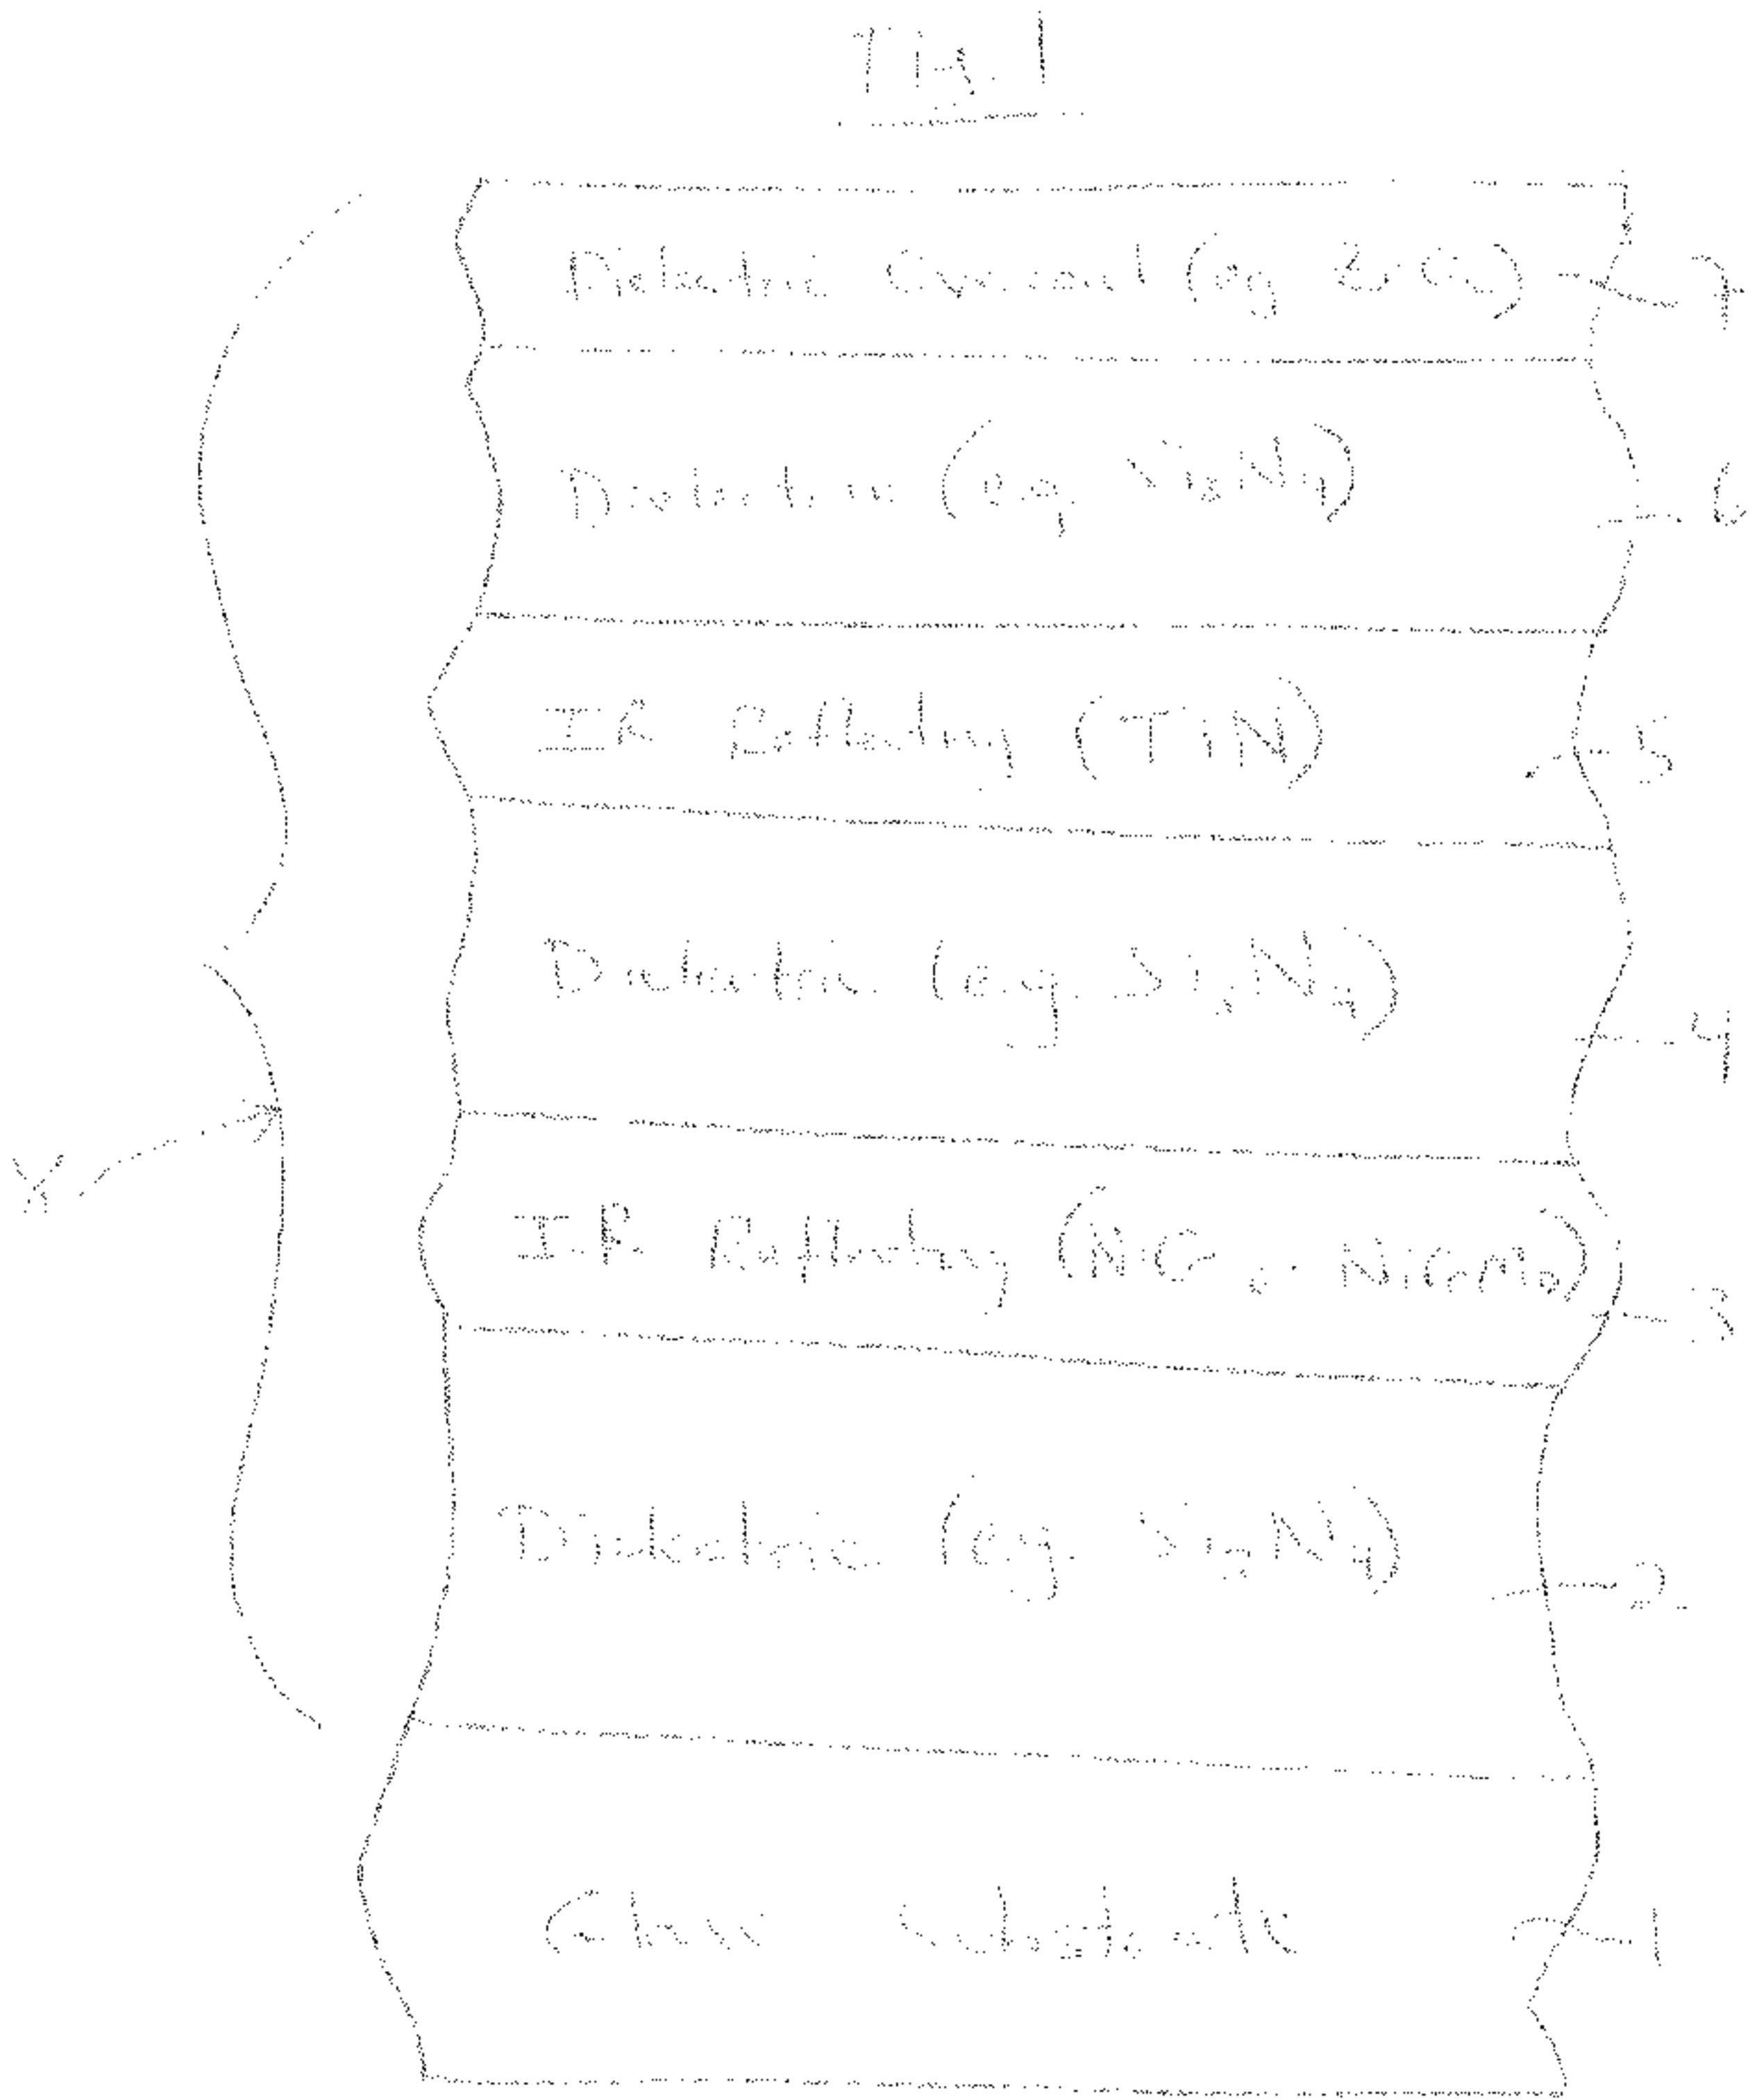 FIG. 1
Dielectric Overcoat (eg ZrO2) 7
Dielectric (eg. Si3N4) 6
IR Reflecting (TiN) 5
Dielectric (e.g. Si3N4) 4
X
IR Reflecting (NiCr or NiCrMo) 3
Dielectric (eg. Si3N4) 2
Glass Substrate 1